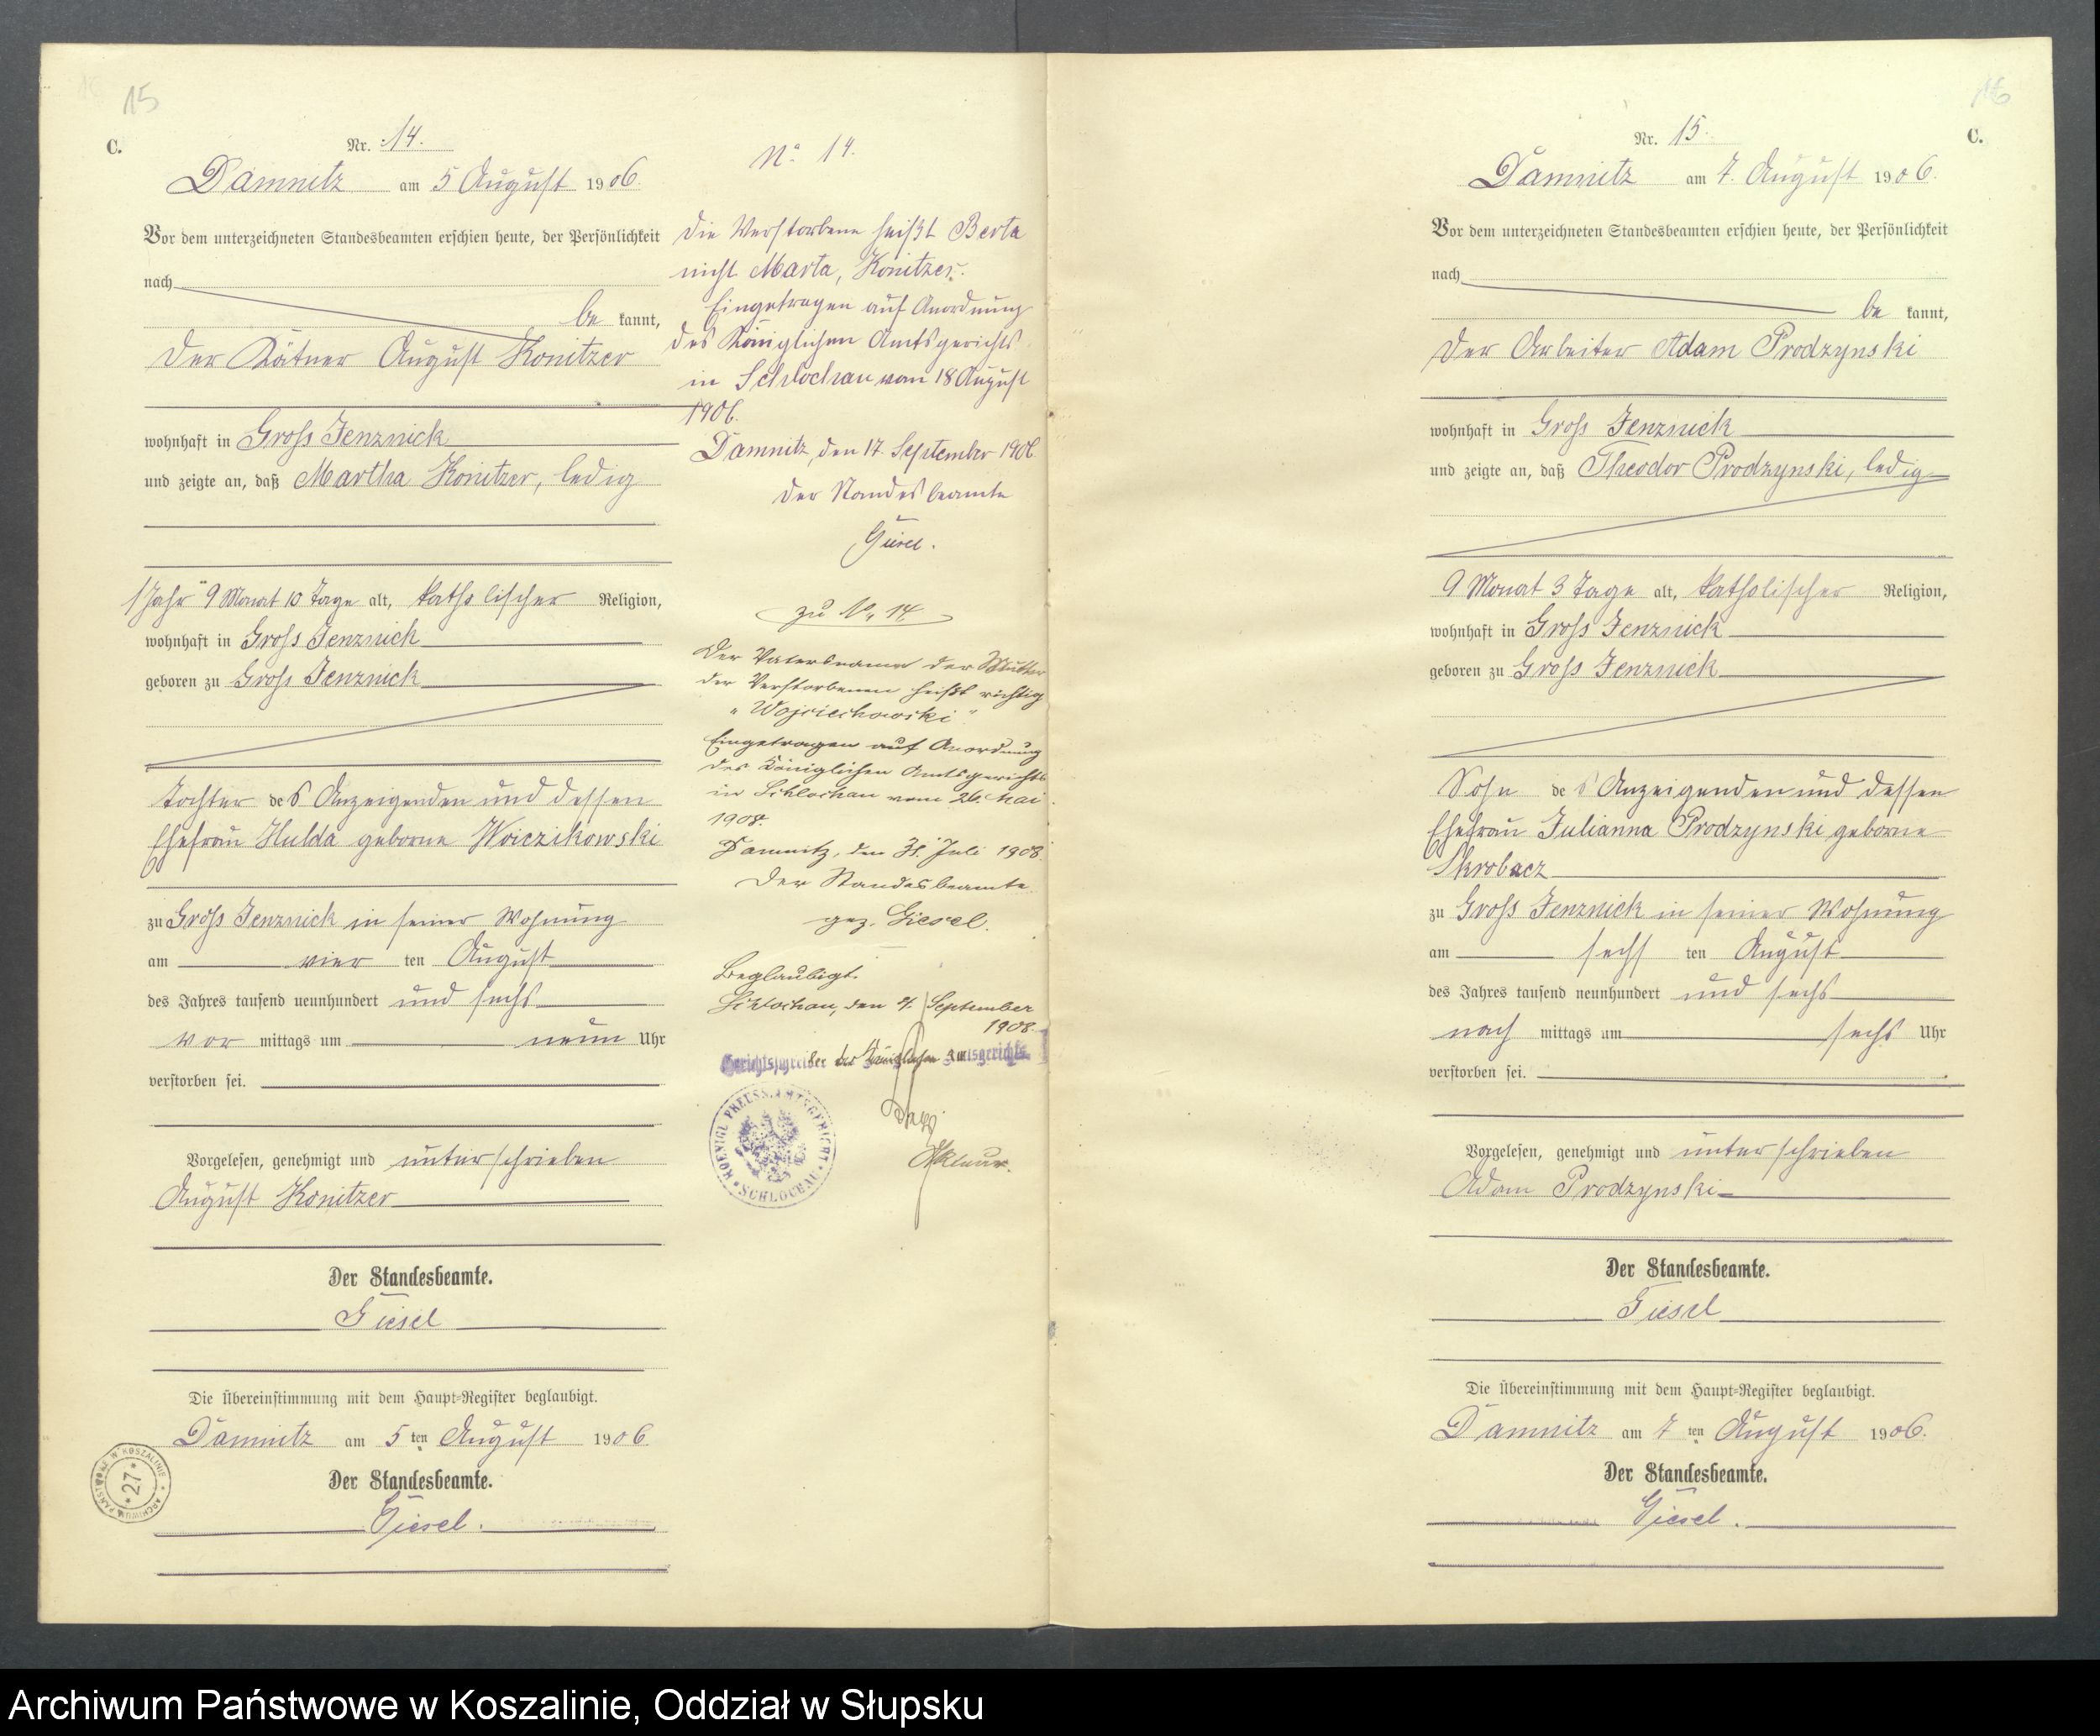 15
C.
Nr. 14.
Damnitz am 5 August 1906.
Vor dem unterzeichneten Standesbeamten erschien heute, der Persönlichkeit
nach
be kannt,
der Kätner August Konitzer
wohnhaft in Gross Jenznick
und zeigte an, daß Martha Konitzer, ledig
1 Jahr 9 Monat 10 Tage alt, katholischer Religion,
wohnhaft in Gross Jenznick
geboren zu Gross Jenznick
Tochter des Anzeigenden und dessen
Ehefrau Hulda geborne Woiczikowski
zu Gross Jenznick in seiner Wohnung
am vier ten August
des Jahres tausend neunhundert und sechs
vor mittags um neun Uhr
verstorben sei.
Vorgelesen, genehmigt und unterschrieben
August Konitzer
Der Standesbeamte.
Giesel
Die Übereinstimmung mit dem Haupt-Register beglaubigt.
Damnitz am 5 ten August 1906.
Der Standesbeamte.
Giesel.
ARCHIWUM PAŃSTWOWE W KOSZALINIE
* 27 *
No 14.
Die Verstorbene heißt Berta
nicht Marta, Konitzer.
Eingetragen auf Anordnung
des Königlichen Amtsgerichts
in Schlochau vom 18 August
1906.
Damnitz, den 17. September 1906.
Der Standesbeamte
Giesel.
zu No 14
Der Vatersname der Mutter
der Verstorbenen heißt richtig
"Wojciechowski"
Eingetragen auf Anordnung
des Königlichen Amtsgerichts
in Schlochau vom 26. Mai
1908.
Damnitz, den 31. Juli 1908.
Der Standesbeamte
gez. Giesel.
Beglaubigt.
Schlochau, den September
1908.
Gerichtsschreiber des Königlichen Amtsgerichts
KOENIGL. PREUSS. AMTSGERICHT * SCHLOCHAU *
16
C.
Nr. 15.
Damnitz am 7. August 1906.
Vor dem unterzeichneten Standesbeamten erschien heute, der Persönlichkeit
nach
be kannt,
der Arbeiter Adam Prodzynski
wohnhaft in Gross Jenznick
und zeigte an, daß Theodor Prodzynski, ledig
9 Monat 3 Tage alt, katholischer Religion,
wohnhaft in Gross Jenznick
geboren zu Gross Jenznick
Sohn des Anzeigenden und dessen
Ehefrau Julianna Prodzynski geborne
Skrobacz
zu Gross Jenznick in seiner Wohnung
am sechs ten August
des Jahres tausend neunhundert und sechs
nach mittags um sechs Uhr
verstorben sei.
Vorgelesen, genehmigt und unterschrieben
Adam Prodzynski
Der Standesbeamte.
Giesel
Die Übereinstimmung mit dem Haupt-Register beglaubigt.
Damnitz am 7 ten August 1906.
Der Standesbeamte.
Giesel.
Archiwum Państwowe w Koszalinie, Oddział w Słupsku